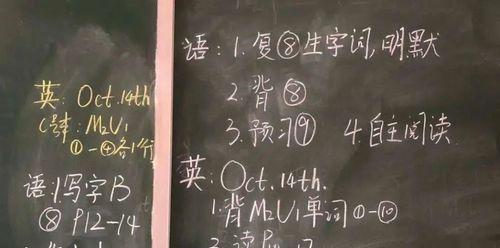 英: Oct. 14th
C号本: M2U1
①-④各1行
语: 1.写字B
⑧ P12-14
语: 1. 复⑧生字词,明默
2. 背⑧
3. 预习⑨ 4. 自主阅读
英: Oct. 14th.
1. 背M2U1单词①-⑩